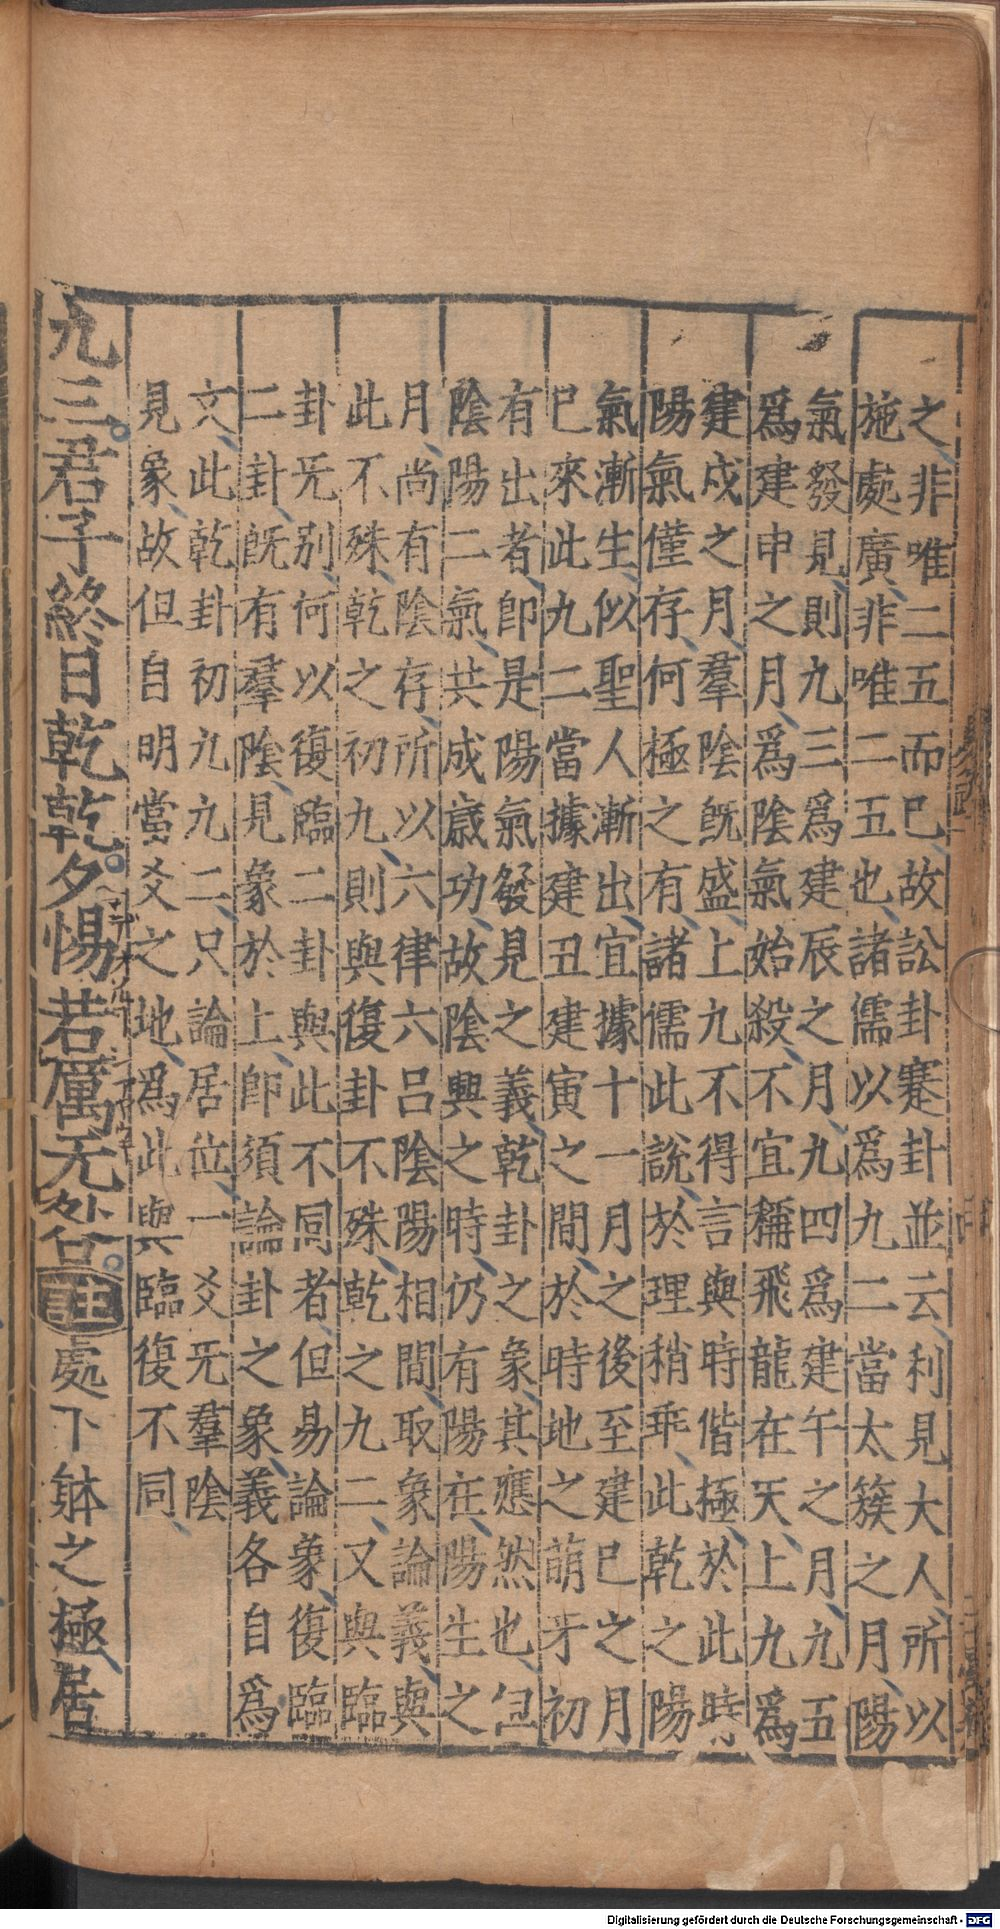 之非唯二五而已故訟卦蹇卦並云利見大人所以
施處廣非唯二五也諸儒以爲九二當太簇之月陽
氣發見則九三爲建辰之月九四爲建午之月九五
爲建申之月爲陰氣始殺不宜稱飛龍在天上九爲
建戌之月羣陰旣盛上九不得言與時偕極於此時
陽氣僅存何極之有諸儒此說於理稍乖此乾之陽
氣漸生似聖人漸出宜據十一月之後至建巳之月
巳來此九二當據建丑建寅之間於時地之萌牙初
有出者卽是陽氣發見之義乾卦之象其應然也但
陰陽二氣共成歲功故陰興之時仍有陽在陽生之
月尚有陰存所以六律六呂陰陽相間取象論義與
此不殊乾之初九則與復卦不殊乾之九二又與臨
卦无別何以復臨二卦與此不同者但易論象復臨
二卦旣有羣陰見象於上卽須論卦之象義各自爲
文此乾卦初九九二只論居位一爻无羣陰
見象故但自明當爻之地爲此與臨復不同
九三君子終日乾乾夕惕若厲无咎註處下躰之極居
Digitalisierung gefördert durch die Deutsche Forschungsgemeinschaft - DFG